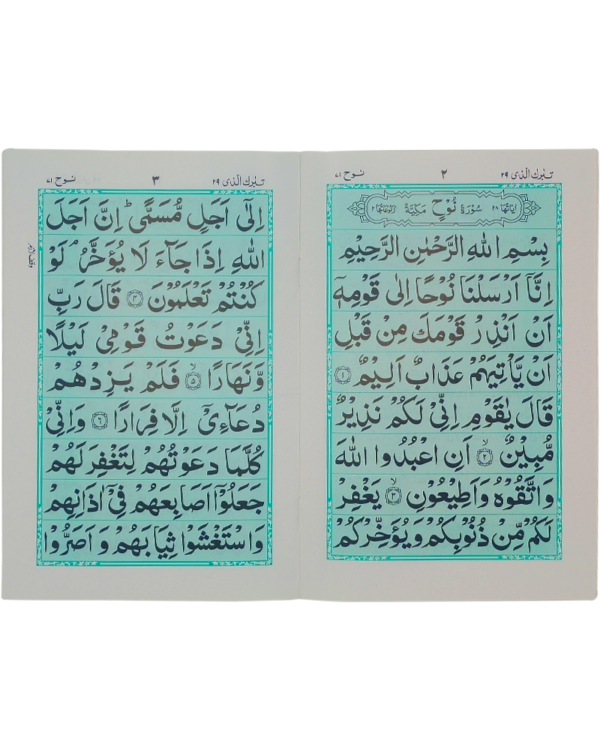 تبٰرك الذى ۲۹ ۲ نوح ۷۱
اٰيَاتُهَا ۲۸ سُوْرَةُ نُوْحٍ مَكِّيَّةٌ رُكُوْعَاتُهَا ۲
بِسْمِ اللهِ الرَّحْمٰنِ الرَّحِيْمِ
اِنَّاۤ اَرْسَلْنَا نُوْحًا اِلٰى قَوْمِهٖۤ
اَنْ اَنْذِرْ قَوْمَكَ مِنْ قَبْلِ
اَنْ يَّاْتِيَهُمْ عَذَابٌ اَلِيْمٌ ۝۱
قَالَ يٰقَوْمِ اِنِّىْ لَكُمْ نَذِيْرٌ
مُّبِيْنٌ ۝۲ۙ اَنِ اعْبُدُوا اللهَ
وَاتَّقُوْهُ وَاَطِيْعُوْنِ ۝۳ۙ يَغْفِرْ
لَكُمْ مِّنْ ذُنُوْبِكُمْ وَيُؤَخِّرْكُمْ
تبٰرك الذى ۲۹ ۳ نوح ۷۱
اِلٰۤى اَجَلٍ مُّسَمًّىؕ اِنَّ اَجَلَ
اللهِ اِذَا جَآءَ لَا يُؤَخَّرُۘ لَوْ
كُنْتُمْ تَعْلَمُوْنَ ۝۴ قَالَ رَبِّ
اِنِّىْ دَعَوْتُ قَوْمِىْ لَيْلًا
وَّنَهَارًا ۝۵ۙ فَلَمْ يَزِدْهُمْ
دُعَآءِىْۤ اِلَّا فِرَارًا ۝۶ وَاِنِّىْ
كُلَّمَا دَعَوْتُهُمْ لِتَغْفِرَ لَهُمْ
جَعَلُوْۤا اَصَابِعَهُمْ فِىْۤ اٰذَانِهِمْ
وَاسْتَغْشَوْا ثِيَابَهُمْ وَاَصَرُّوْا